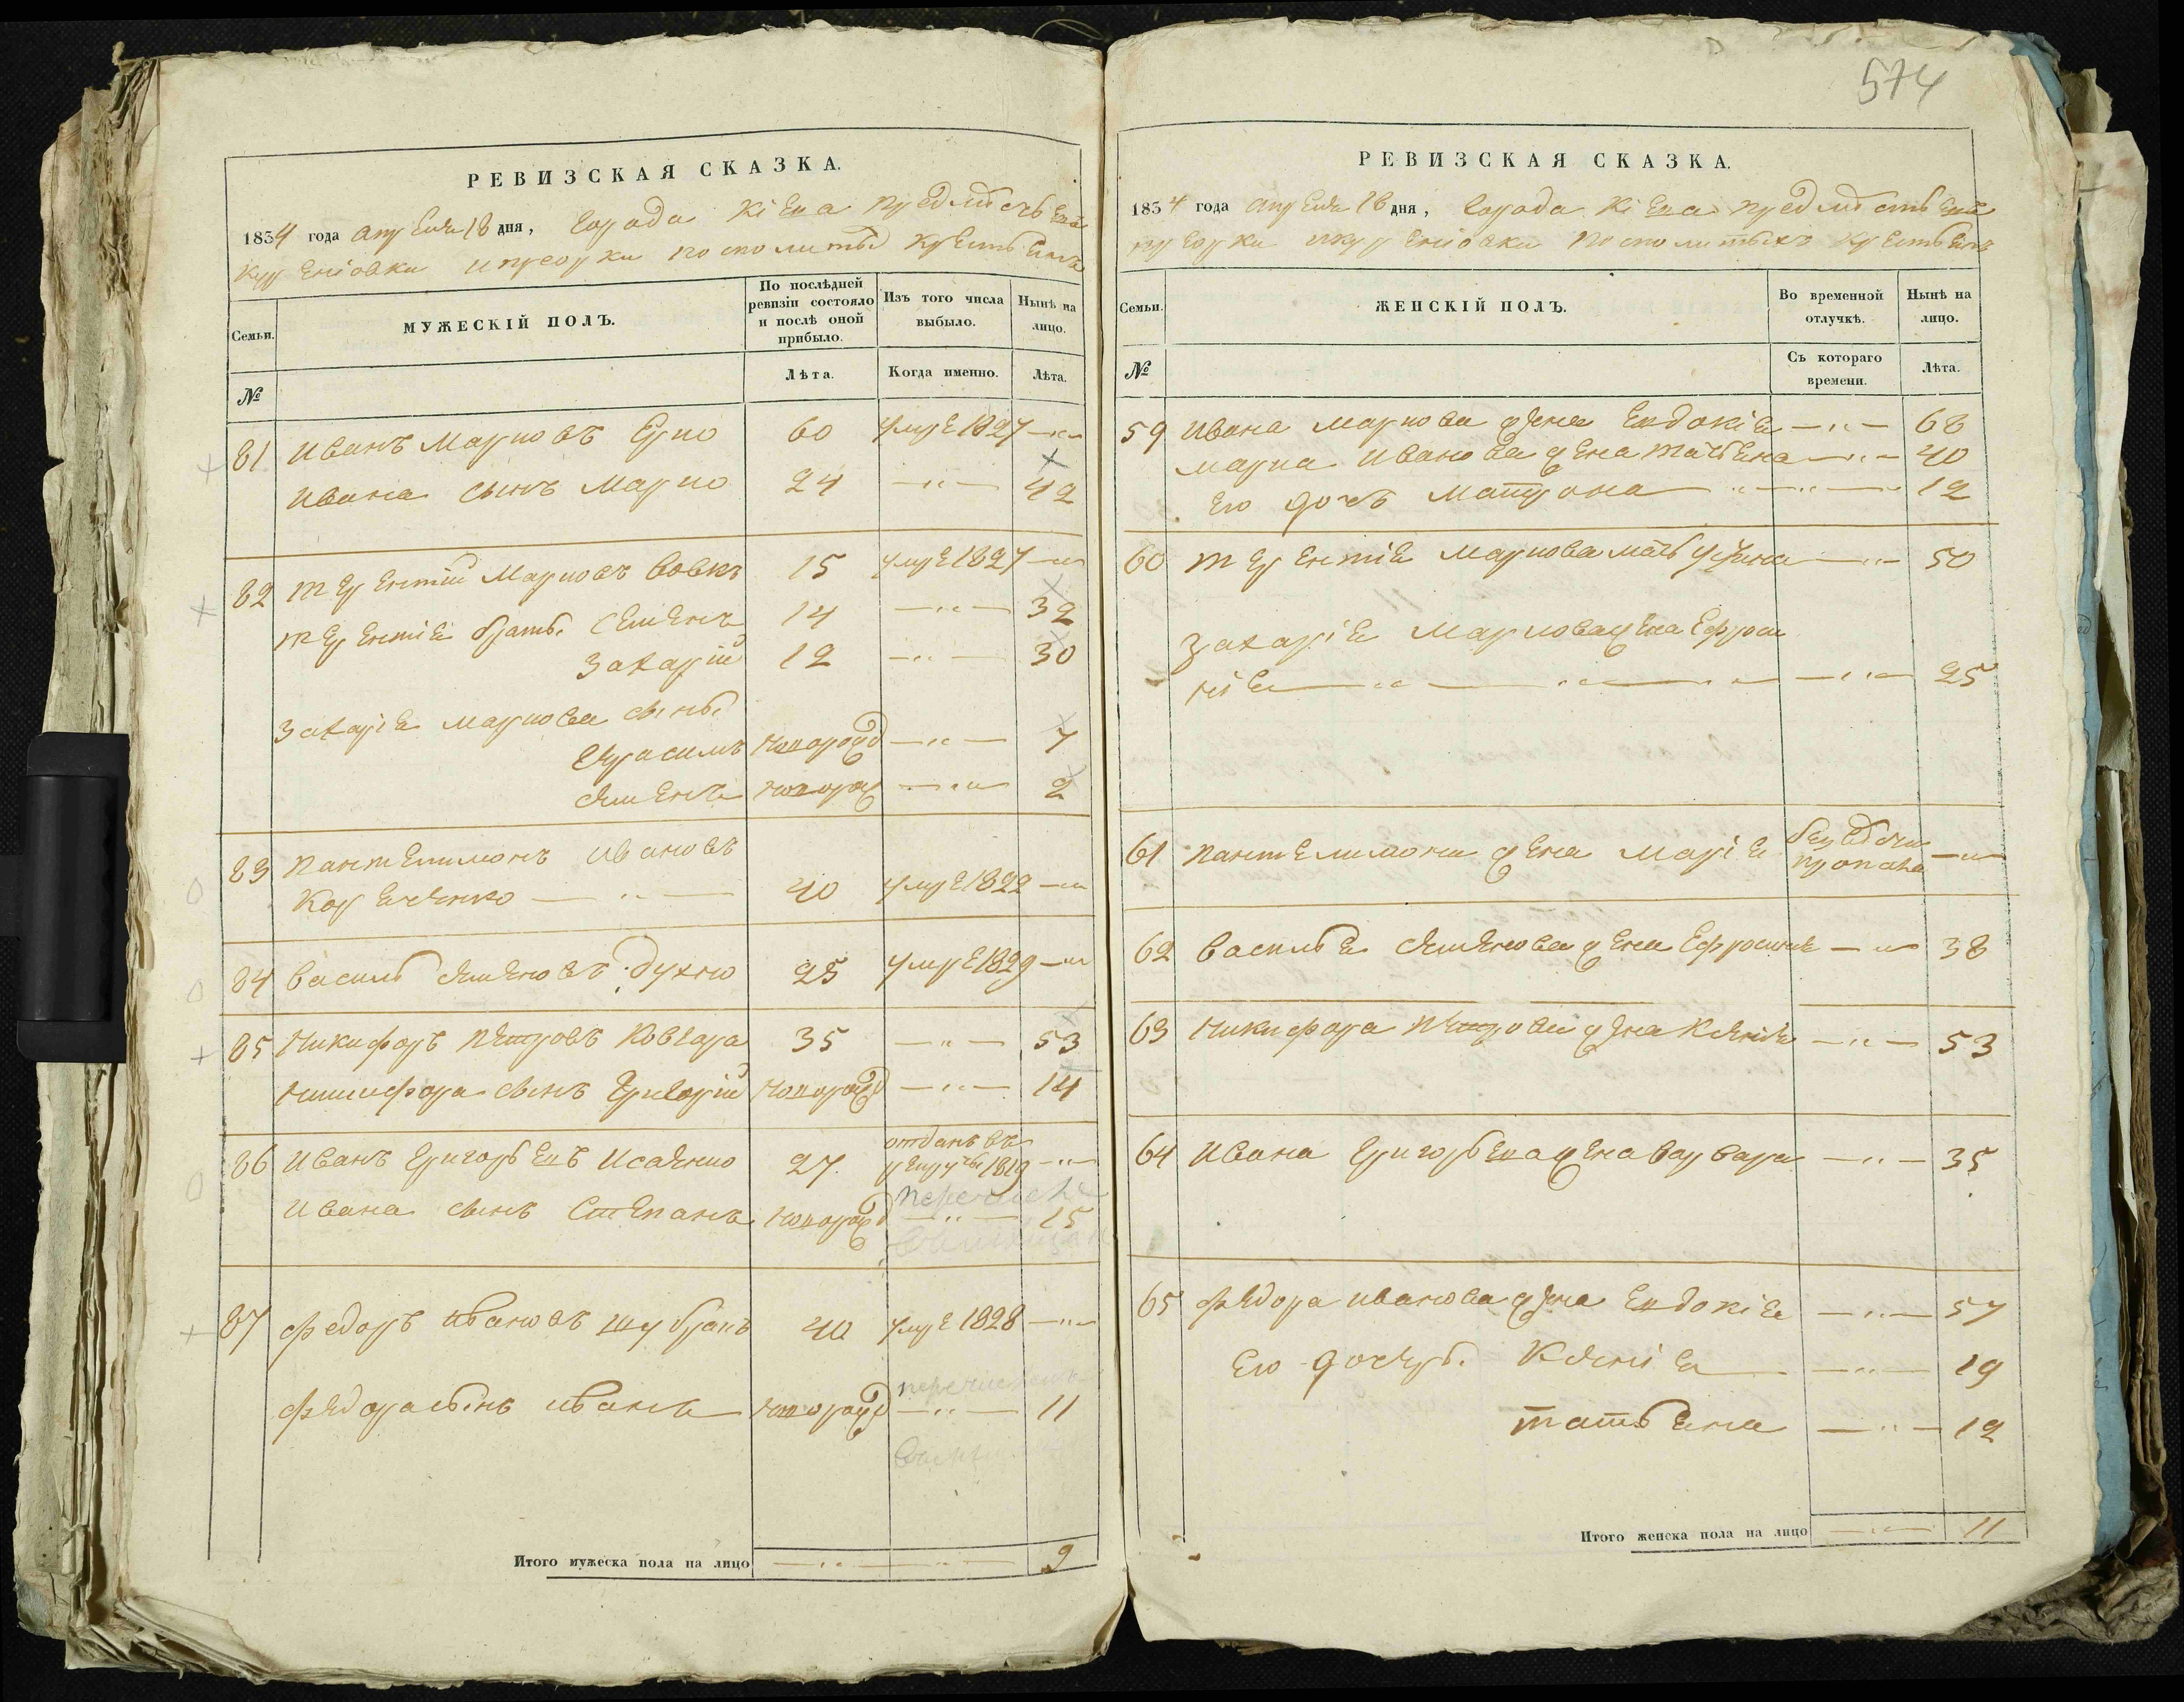 574
РЕВИЗСКАЯ СКАЗКА.
1834 года апреля 18 дня, города Кіева предместьевъ
Куреніовки и Приорки посполитыхъ крестьянъ
Семьи.
МУЖЕСКІЙ ПОЛЪ.
По послѣдней ревизіи состояло и послѣ оной прибыло.
Изъ того числа выбыло.
Нынѣ на лицо.
№
Лѣта.
Когда именно.
Лѣта.
81 Иванъ Марковъ 60 умре 1827 —"—
Ивана сынъ Марко 24 —"— 42
82 Терентій Марковъ Вовкъ 15 умре 1827 —"—
Терентія братья Семенъ 14 —"— 32
Захарій 12 —"— 30
Захарія Маркова сыны
Герасимъ новорожд —"— 7
Семенъ новорож —"— 2
83 Пантелимонъ Ивановъ
—"— 40 умре 1822 —"—
84 Василь Семеновъ Духно 25 умре 1829 —"—
85 Никифоръ Петровъ Ковгара 35 —"— 53
Никифора сынъ Григорій новорожд —"— 14
86 Иванъ Григорьевъ Исаенко 27. отданъ въ рекруты 1819 —"—
Ивана сынъ Степанъ новорожд —"— 15
87 Федоръ Ивановъ 40 умре 1828 —"—
перечисленъ
Федора сынъ Иванъ новорожд —"— 11
Итого мужеска пола на лицо —"— —"— 9
РЕВИЗСКАЯ СКАЗКА.
1834 года апреля 18 дня, города Кіева предместьевъ
Приорки и Куреніовки посполитыхъ крестьянъ
Семьи.
ЖЕНСКІЙ ПОЛЪ.
Во временной отлучкѣ.
Нынѣ на лицо.
№
Съ котораго времени.
Лѣта.
59 Ивана Маркова жена Евдокія —"— 68
Марка Иванова жена Татьяна —"— 40
Его дочь Матрона —"— 12
60 Терентія Маркова мать —"— 50
Захарія Маркова жена Ефроси
нія —"— 25
61 Пантелимона жена Марія —"—
62 Василья Семенова жена Ефросинія —"— 38
63 Никифора Петрова жена Ксенія —"— 53
64 Ивана Григорьева жена Варвара —"— 35
65 Федора Иванова жена Евдокія —"— 57
Его дочери Ксенія —"— 19
Татьяна —"— 12
Итого женска пола на лицо —"— 11